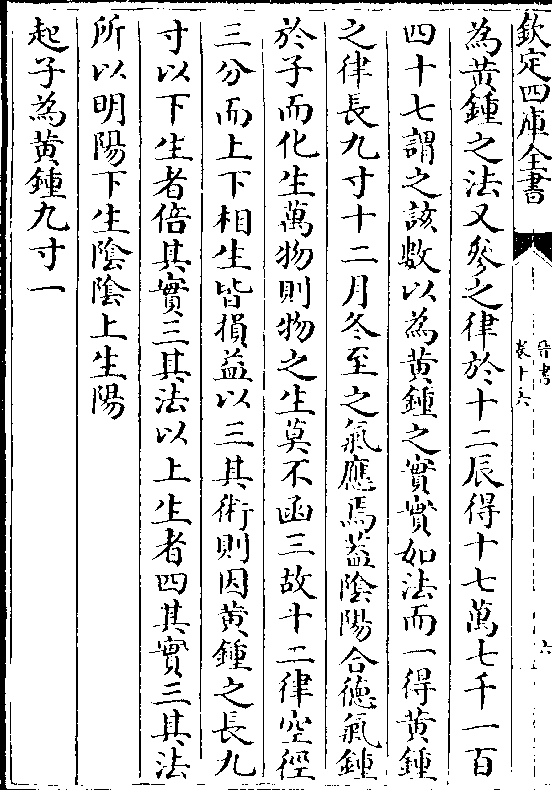 欽定四庫全書
晉書
卷十六
六
為黃鍾之法又參之律於十二辰得十七萬七千一百
四十七謂之該數以為黃鍾之實實如法而一得黃鍾
之律長九寸十二月冬至之氣應焉葢陰陽合徳氣鍾
於子而化生萬物則物之生莫不函三故十二律空徑
三分而上下相生皆損益以三其術則因黃鍾之長九
寸以下生者倍其實三其法以上生者四其實三其法
所以明陽下生陰陰上生陽
起子為黃鍾九寸一